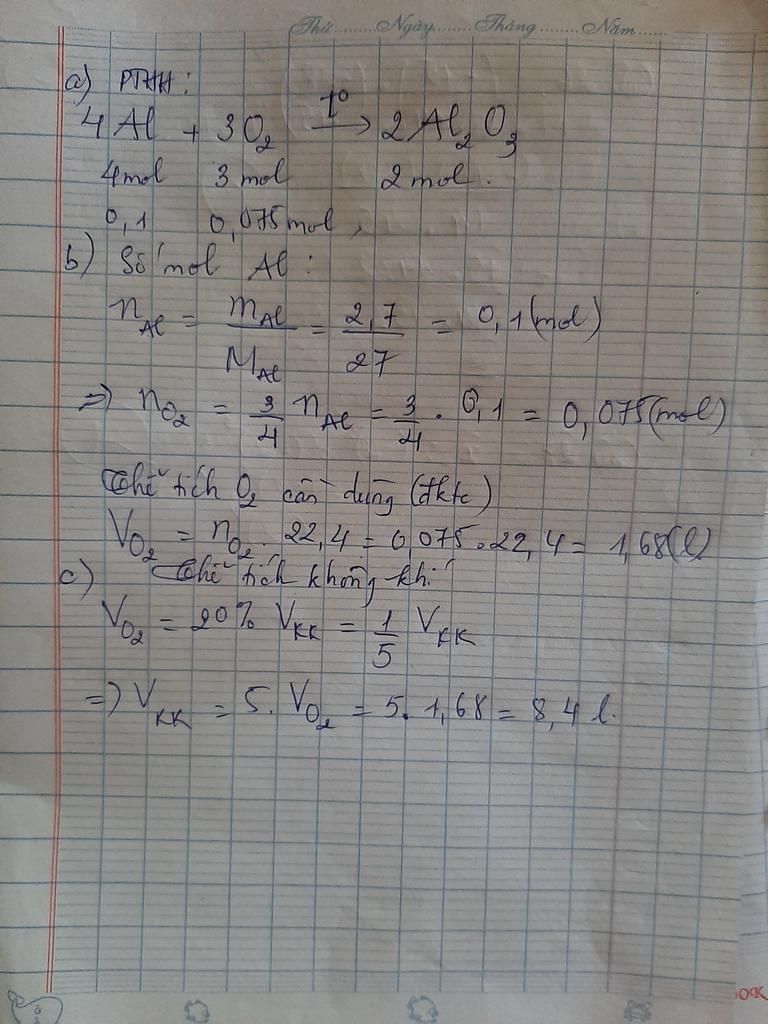 Thứ ........ Ngày ........ Tháng ........ Năm ......
a) PTHH:
4Al + 3O₂ —t°→ 2Al₂O₃
4mol 3mol 2mol.
0,1 0,075mol,
b) Số mol Al:
n_Al = m_Al/M_Al = 2,7/27 = 0,1(mol)
=> n_O₂ = 3/4 n_Al = 3/4 . 0,1 = 0,075(mol)
Thể tích O₂ cần dùng (đktc)
V_O₂ = n_O₂ . 22,4 = 0,075.22,4 = 1,68(l)
c) Thể tích không khí
V_O₂ = 20% V_KK = 1/5 V_KK
=> V_KK = 5. V_O₂ = 5. 1,68 = 8,4 l.